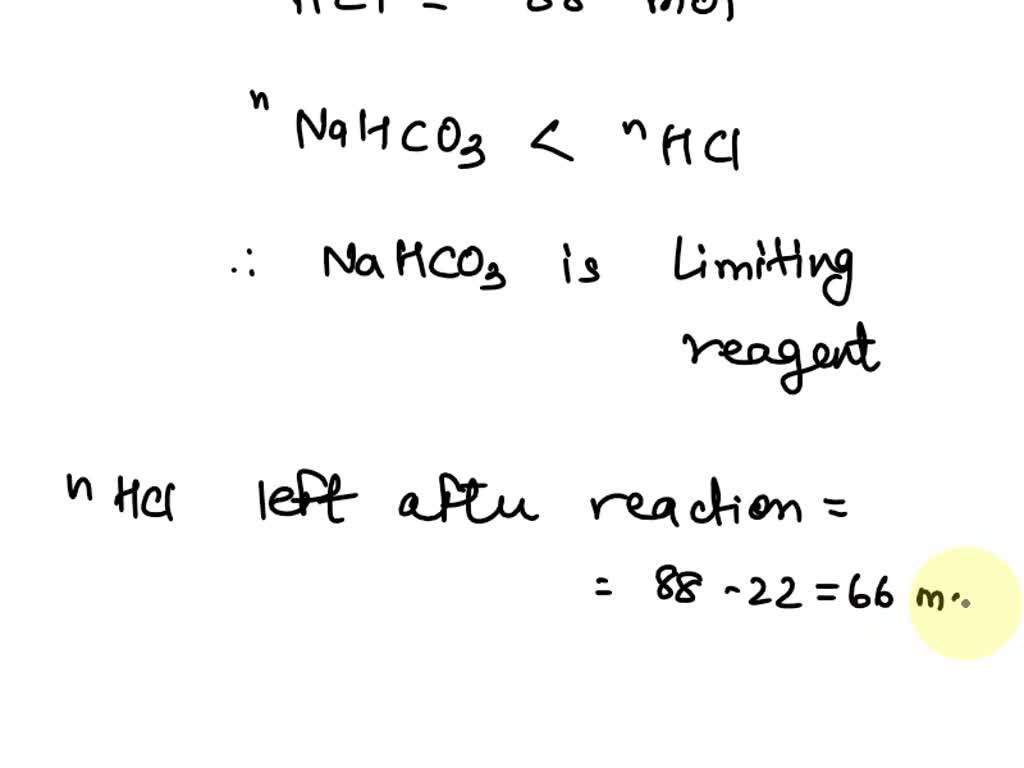 HCl = 88 mol
n NaHCO3 < n HCl
∴ NaHCO3 is Limiting
reagent
n HCl left after reaction =
= 88 - 22 = 66 m